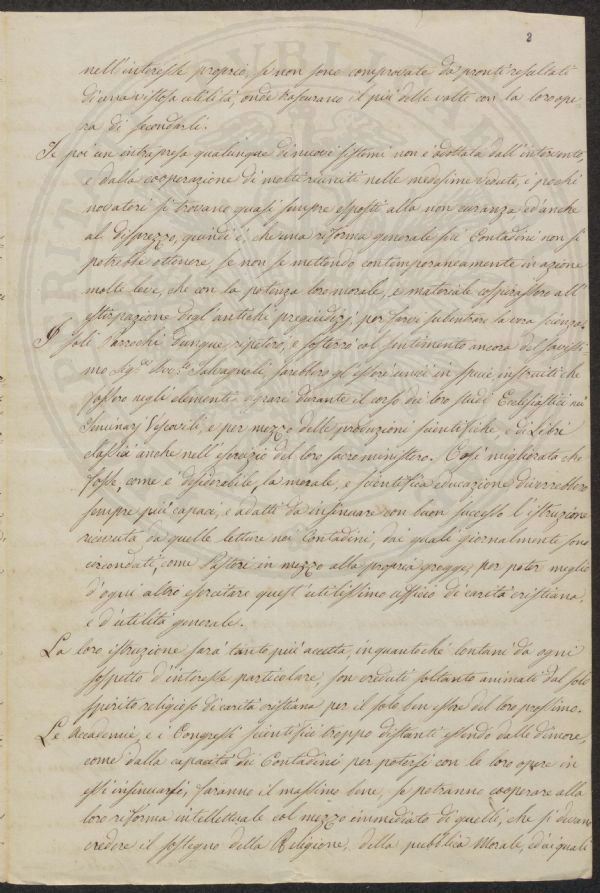 2
nell'interesse proprio, se non sono comprovate da pronti resultati
di una vistosa utilità, onde trascurano il più delle volte con la loro ope-
ra di secondarli.
Se poi un intrapresa qualunque di nuovi sistemi non è adottata dall'intervento,
e dalla cooperazione di molti riuniti nelle medesime vedute, i pochi
novatori si trovano quasi sempre esposti alla non curanza, ed anche
al disprezzo, quindi è, che una riforma generale sui Contadini non si
potrebbe ottenere, se non se mettendo contemporaneamente in azione
molte leve, che con la potenza loro morale, e materiale cospirassero all'
estirpazione degl'antichi pregiudizj, per farvi subentrare la vera scienza.
I soli Parrochi dunque, ripeterò, e sosterrò col sentimento ancora del saviissi-
mo Sig.re Avv.to Salvagnoli, sarebbero gl'esseri unici in specie, instruiti che
fossero negli elementi agrarj durante il corso dei loro studi Ecclesiastici nei
Seminarj Vescovili, e per mezzo delle produzioni scientifiche, e di Libri
classici anche nell'esercizio del loro sacro ministero. Così migliorata che
fosse, come è desiderabile, la morale, e scientifica educazione diverrebbero
sempre più capaci, e adatti da insinuare con buon successo l'istruzione
ricevuta da quelle letture nei Contadini, dai quali giornalmente sono
circondati come Pastori in mezzo alla propria gregge, per poter meglio
d'ogni altro esercitare quest'utilissimo ufficio di carità cristiana,
e d'utilità generale.
La loro istruzione sarà tanto più accetta, inquantoché lontani da ogni
sospetto d'interesse particolare, son creduti soltanto animati dal solo
spirito religioso di carità cristiana per il solo ben essere del loro prossimo.
Le Accademie, e i Congressi scientifici troppo distanti essendo dalle dimore,
come dalla capacità dei Contadini per potersi con le loro opere in
essi insinuarsi, faranno il massimo bene, se potranno cooperare alla
loro riforma intellettuale col mezzo immediato di quelli, che si devon
credere il sostegno della Religione, della pubblica Morale, ed ai quali